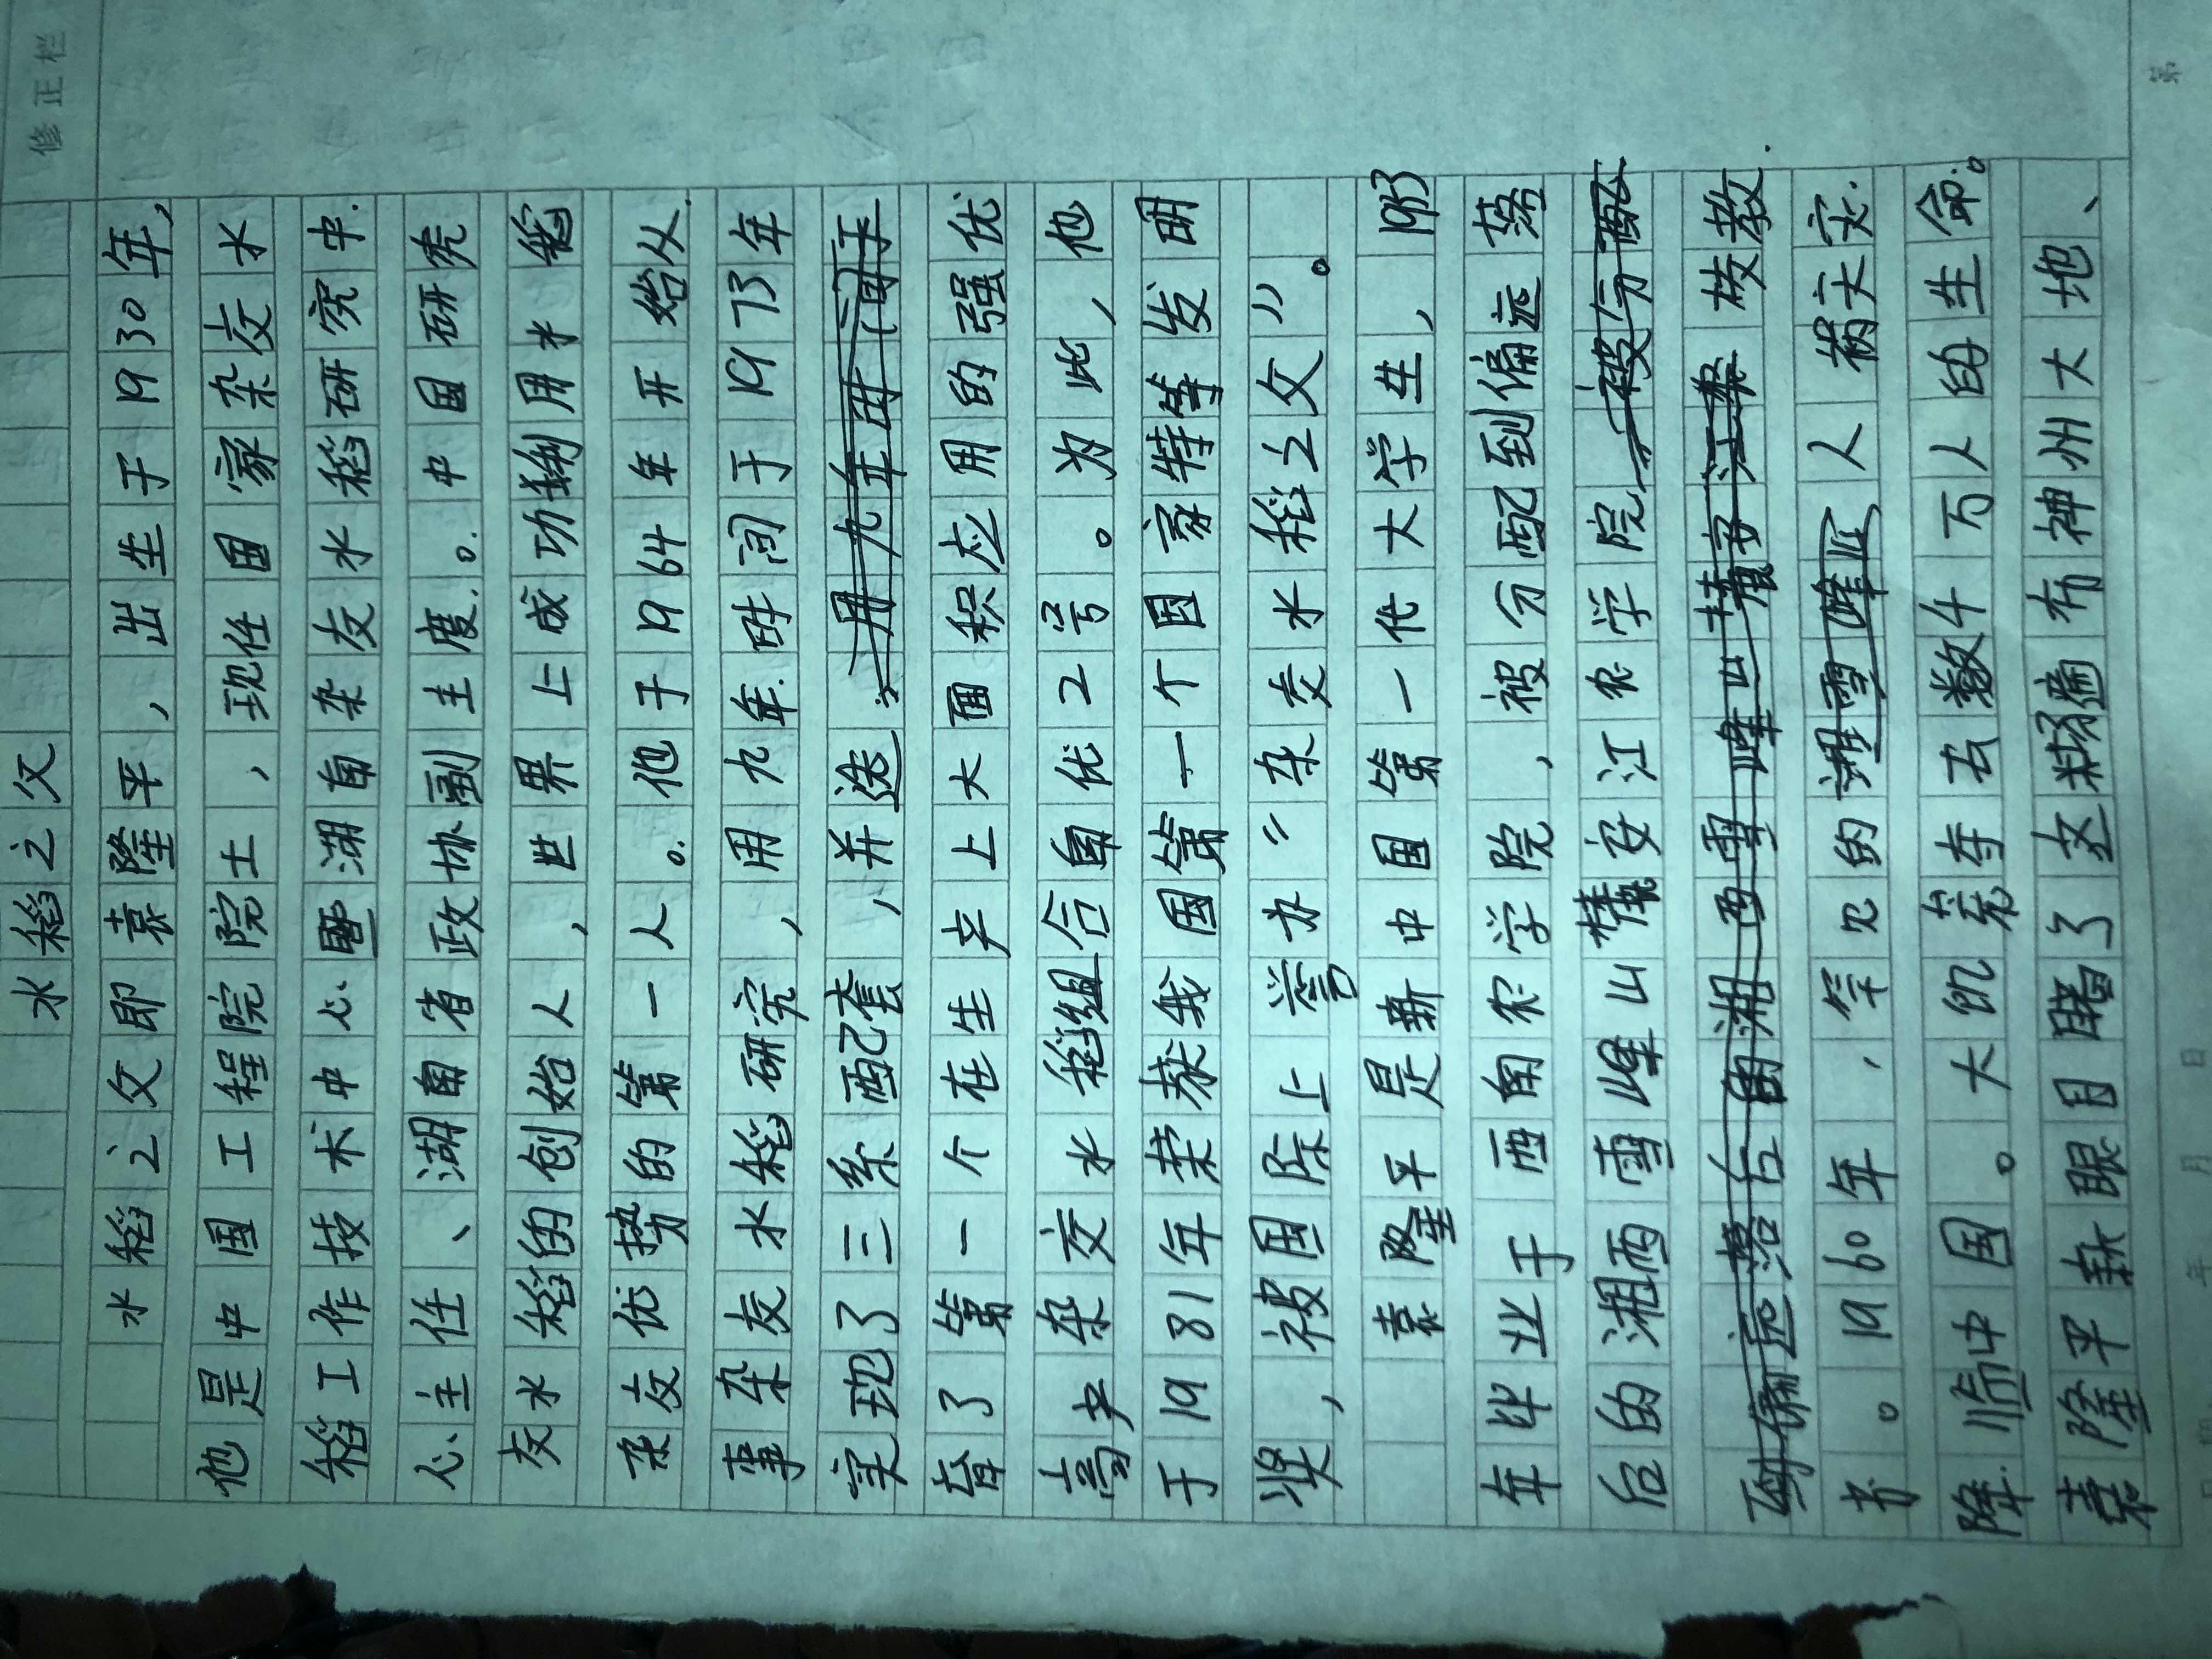 修正栏
水稻之父
水稻之父即袁隆平，出生于1930年，
他是中国工程院院士，现任国家杂交水
稻工作技术中心暨湖南杂交水稻研究中
心主任、湖南省政协副主席。中国研究
交水稻的创始人，世界上成功利用水稻
杂交优势的第一人。他于1964年开始从
事杂交水稻研究，用九年时间于1973年
实现了三系配套，并选
育了第一个在生产上大面积应用的强优
高产杂交水稻组合南优2号。为此，他
于1981年荣获我国第一个国家特等发明
奖，被国际上誉为“杂交水稻之父”。
袁隆平是新中国第一代大学生，1953
年毕业于西南农学院，被分配到偏远落
后的湘西雪峰山麓安江农学院
校教
书。1960年，罕见的 人祸天灾
降临中国。大饥荒夺去数千万人的生命。
袁隆平亲眼目睹了这场痛布神州大地、
第
年 月 日